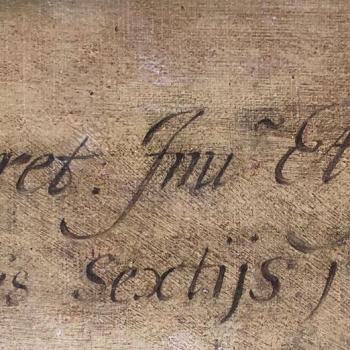 ret. Jnu~ Et
is sextijs